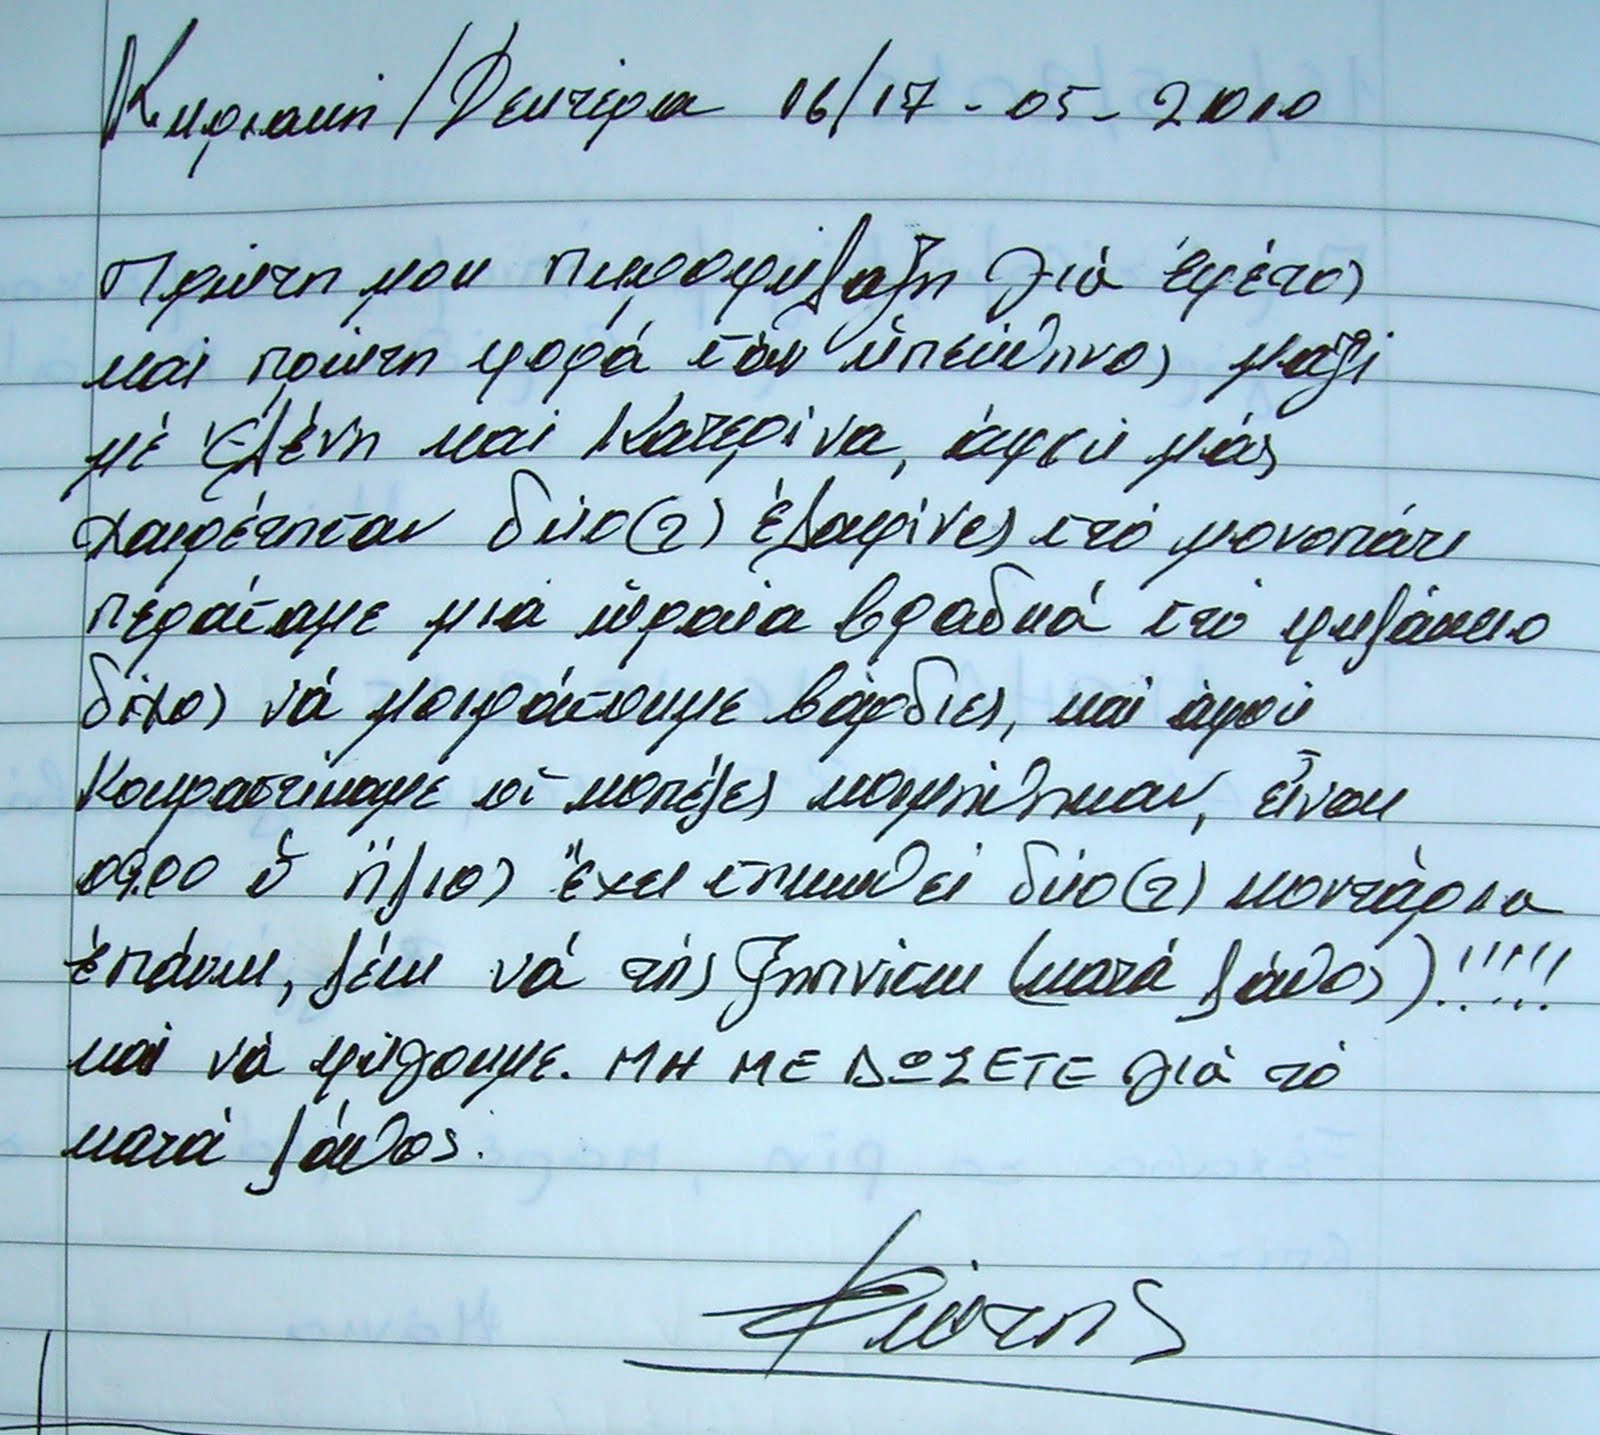 Κυριακή/Δευτέρα 16/17-05-2010
Πρώτη μου πυροφύλαξη γιὰ ἐφέτος
καὶ πρώτη φορά σὰν ὑπεύθηνος μαζὶ
μὲ Ἑλένη καὶ Κατερίνα, ἀφοῦ μᾶς
χαιρέτησαν δύο(2) ἐλαφίνες στὸ μονοπάτι
περάσαμε μιὰ ὡραία βραδυά στὸ φυλάκιο
δίχος νὰ μοιράσουμε βάρδιες, καὶ ἀφοῦ
Κουραστήκαμε οἱ κοπέλες κοιμήθηκαν, εἶναι
09.00 ὁ ἥλιος ἔχει σηκωθεῖ δύο(2) κοντάρια
ἐπάνω, λέω νὰ τὶς ξηπνίσω (κατά λάθος)!!!!!
καὶ νὰ φύγουμε. ΜΗ ΜΕ ΔΩΣΕΤΕ γιὰ τὸ
κατὰ λάθος.
Φιώτης